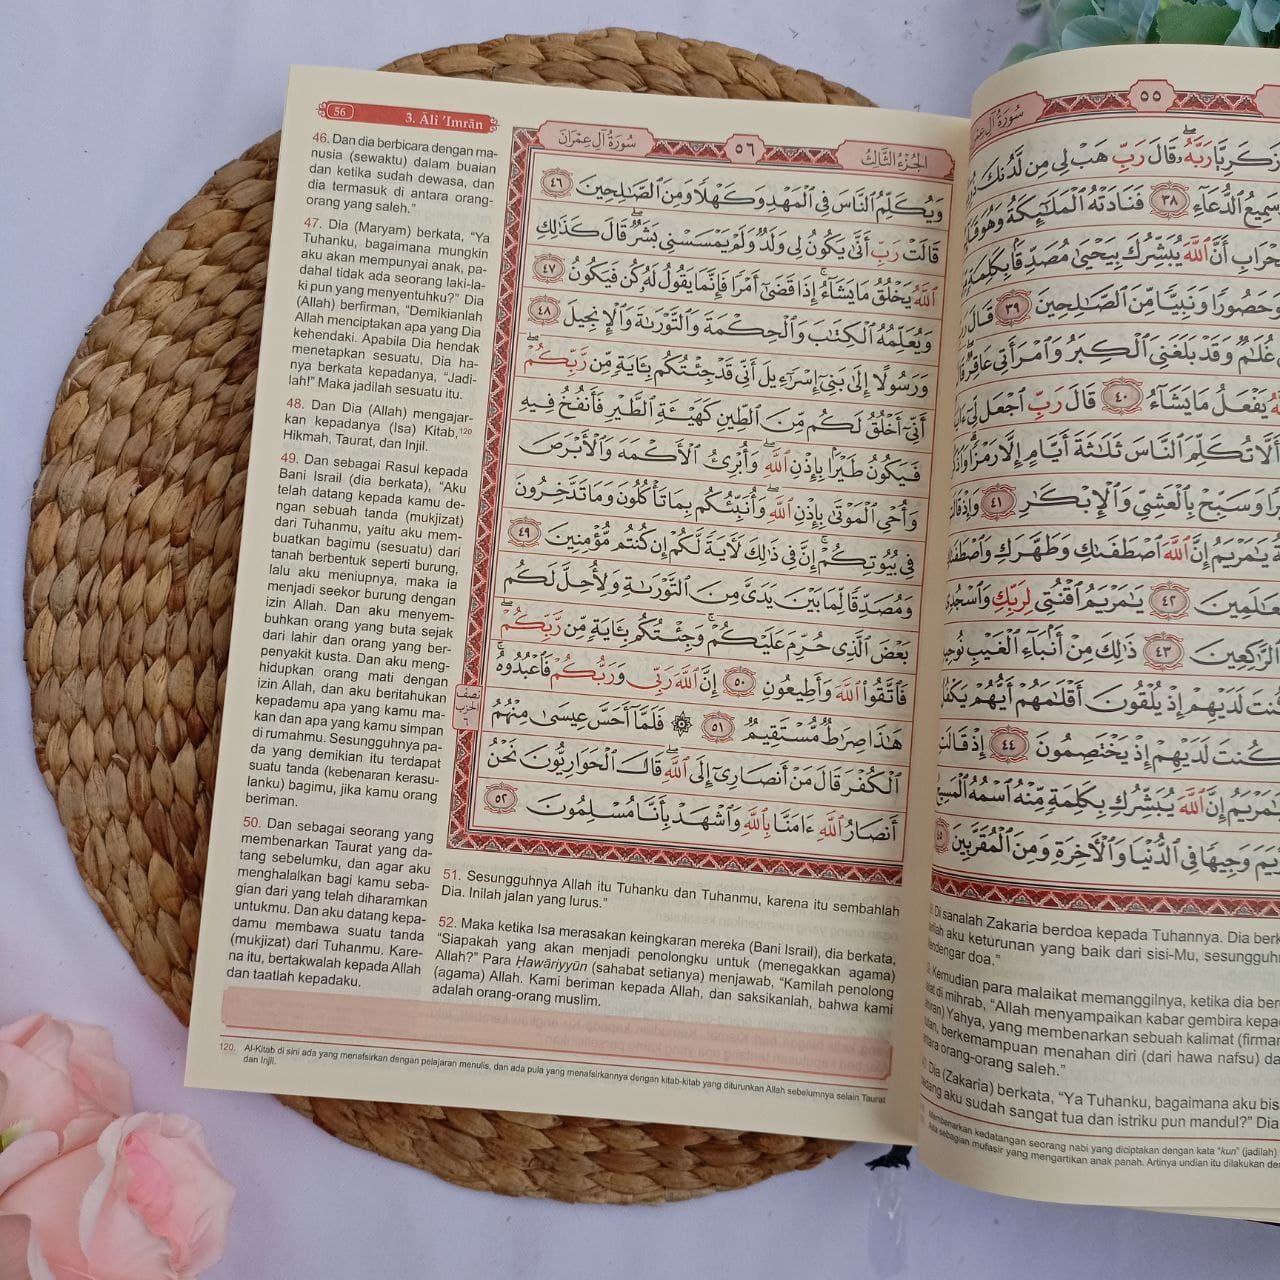 56
3. Āli 'Imrān
46. Dan dia berbicara dengan ma-
nusia (sewaktu) dalam buaian
dan ketika sudah dewasa, dan
dia termasuk di antara orang-
orang yang saleh.”
47. Dia (Maryam) berkata, “Ya
Tuhanku, bagaimana mungkin
aku akan mempunyai anak, pa-
dahal tidak ada seorang laki-la-
ki pun yang menyentuhku?” Dia
(Allah) berfirman, “Demikianlah
Allah menciptakan apa yang Dia
kehendaki. Apabila Dia hendak
menetapkan sesuatu, Dia ha-
nya berkata kepadanya, “Jadi-
lah!” Maka jadilah sesuatu itu.
48. Dan Dia (Allah) mengajar-
kan kepadanya (Isa) Kitab,120
Hikmah, Taurat, dan Injil.
49. Dan sebagai Rasul kepada
Bani Israil (dia berkata), “Aku
telah datang kepada kamu de-
ngan sebuah tanda (mukjizat)
dari Tuhanmu, yaitu aku mem-
buatkan bagimu (sesuatu) dari
tanah berbentuk seperti burung,
lalu aku meniupnya, maka ia
menjadi seekor burung dengan
izin Allah. Dan aku menyem-
buhkan orang yang buta sejak
dari lahir dan orang yang ber-
penyakit kusta. Dan aku meng-
hidupkan orang mati dengan
izin Allah, dan aku beritahukan
kepadamu apa yang kamu ma-
kan dan apa yang kamu simpan
di rumahmu. Sesungguhnya pa-
da yang demikian itu terdapat
suatu tanda (kebenaran kerasu-
lanku) bagimu, jika kamu orang
beriman.
50. Dan sebagai seorang yang
membenarkan Taurat yang da-
tang sebelumku, dan agar aku
menghalalkan bagi kamu seba-
gian dari yang telah diharamkan
untukmu. Dan aku datang kepa-
damu membawa suatu tanda
(mukjizat) dari Tuhanmu. Kare-
na itu, bertakwalah kepada Allah
dan taatlah kepadaku.
الجزء الثالث
٥٦
سورة آل عمران
وَيُكَلِّمُ النَّاسَ فِي الْمَهْدِ وَكَهْلًا وَمِنَ الصَّـٰلِحِينَ ٤٦
قَالَتْ رَبِّ أَنَّىٰ يَكُونُ لِي وَلَدٌ وَلَمْ يَمْسَسْنِي بَشَرٌ ۖ قَالَ كَذَٰلِكِ
اللَّهُ يَخْلُقُ مَا يَشَاءُ ۚ إِذَا قَضَىٰ أَمْرًا فَإِنَّمَا يَقُولُ لَهُ كُن فَيَكُونُ ٤٧
وَيُعَلِّمُهُ الْكِتَـٰبَ وَالْحِكْمَةَ وَالتَّوْرَىٰةَ وَالْإِنجِيلَ ٤٨
وَرَسُولًا إِلَىٰ بَنِي إِسْرَٰٓءِيلَ أَنِّي قَدْ جِئْتُكُم بِـَٔايَةٍ مِّن رَّبِّكُمْ ۖ
أَنِّي أَخْلُقُ لَكُم مِّنَ الطِّينِ كَهَيْـَٔةِ الطَّيْرِ فَأَنفُخُ فِيهِ
فَيَكُونُ طَيْرًا بِإِذْنِ اللَّهِ ۖ وَأُبْرِئُ الْأَكْمَهَ وَالْأَبْرَصَ
وَأُحْيِ الْمَوْتَىٰ بِإِذْنِ اللَّهِ ۖ وَأُنَبِّئُكُم بِمَا تَأْكُلُونَ وَمَا تَدَّخِرُونَ
فِي بُيُوتِكُمْ ۚ إِنَّ فِي ذَٰلِكَ لَـَٔايَةً لَّكُمْ إِن كُنتُم مُّؤْمِنِينَ ٤٩
وَمُصَدِّقًا لِّمَا بَيْنَ يَدَيَّ مِنَ التَّوْرَىٰةِ وَلِأُحِلَّ لَكُم
بَعْضَ الَّذِي حُرِّمَ عَلَيْكُمْ ۚ وَجِئْتُكُم بِـَٔايَةٍ مِّن رَّبِّكُمْ ۖ
فَاتَّقُوا اللَّهَ وَأَطِيعُونِ ٥٠ إِنَّ اللَّهَ رَبِّي وَرَبُّكُمْ فَاعْبُدُوهُ ۗ
هَـٰذَا صِرَٰطٌ مُّسْتَقِيمٌ ٥١ ۞ فَلَمَّا أَحَسَّ عِيسَىٰ مِنْهُمُ
الْكُفْرَ قَالَ مَنْ أَنصَارِي إِلَى اللَّهِ ۖ قَالَ الْحَوَارِيُّونَ نَحْنُ
أَنصَارُ اللَّهِ ءَامَنَّا بِاللَّهِ وَاشْهَدْ بِأَنَّا مُسْلِمُونَ ٥٢
نصف
الحزب
٦
51. Sesungguhnya Allah itu Tuhanku dan Tuhanmu, karena itu sembahlah
Dia. Inilah jalan yang lurus.”
52. Maka ketika Isa merasakan keingkaran mereka (Bani Israil), dia berkata,
“Siapakah yang akan menjadi penolongku untuk (menegakkan agama)
Allah?” Para Ḥawāriyyūn (sahabat setianya) menjawab, “Kamilah penolong
(agama) Allah. Kami beriman kepada Allah, dan saksikanlah, bahwa kami
adalah orang-orang muslim.
120. Al-Kitab di sini ada yang menafsirkan dengan pelajaran menulis, dan ada pula yang menafsirkannya dengan kitab-kitab yang diturunkan Allah sebelumnya selain Taurat
dan Injil.
٥٥
سورة آل عمران
زَكَرِيَّا رَبَّهُ ۖ قَالَ رَبِّ هَبْ لِي مِن لَّدُنكَ
سَمِيعُ الدُّعَاءِ ٣٨ فَنَادَتْهُ الْمَلَـٰئِكَةُ وَهُوَ
أَنَّ اللَّهَ يُبَشِّرُكَ بِيَحْيَىٰ مُصَدِّقًا بِكَلِمَةٍ
وَحَصُورًا وَنَبِيًّا مِّنَ الصَّـٰلِحِينَ ٣٩ قَالَ
غُلَـٰمٌ وَقَدْ بَلَغَنِيَ الْكِبَرُ وَامْرَأَتِي عَاقِرٌ ۖ
يَفْعَلُ مَا يَشَاءُ ٤٠ قَالَ رَبِّ اجْعَل لِّي
أَلَّا تُكَلِّمَ النَّاسَ ثَلَـٰثَةَ أَيَّامٍ إِلَّا رَمْزًا ۗ
وَسَبِّحْ بِالْعَشِيِّ وَالْإِبْكَـٰرِ ٤١ وَإِذْ قَالَتِ
يَـٰمَرْيَمُ إِنَّ اللَّهَ اصْطَفَىٰكِ وَطَهَّرَكِ وَاصْطَفَىٰكِ
٤٢ يَـٰمَرْيَمُ اقْنُتِي لِرَبِّكِ وَاسْجُدِي
الرَّٰكِعِينَ ٤٣ ذَٰلِكَ مِنْ أَنبَاءِ الْغَيْبِ
لَدَيْهِمْ إِذْ يُلْقُونَ أَقْلَـٰمَهُمْ أَيُّهُمْ يَكْفُلُ
كُنتَ لَدَيْهِمْ إِذْ يَخْتَصِمُونَ ٤٤ إِذْ قَالَتِ
إِنَّ اللَّهَ يُبَشِّرُكِ بِكَلِمَةٍ مِّنْهُ اسْمُهُ الْمَسِيحُ
وَجِيهًا فِي الدُّنْيَا وَالْـَٔاخِرَةِ وَمِنَ الْمُقَرَّبِينَ ٤٥
Di sanalah Zakaria berdoa kepada Tuhannya. Dia
aku keturunan yang baik dari sisi-Mu,
doa.”
Kemudian para malaikat memanggilnya, ketika dia
di mihrab, “Allah menyampaikan kabar gembira
Yahya, yang membenarkan sebuah kalimat
berkemampuan menahan diri (dari hawa nafsu)
orang-orang saleh.”
Dia (Zakaria) berkata, “Ya Tuhanku, bagaimana aku
aku sudah sangat tua dan istriku pun mandul?” Dia
Membenarkan kedatangan seorang nabi yang diciptakan dengan kata “kun” (jadilah)
Ada sebagian mufasir yang mengartikan anak panah. Artinya undian itu dilakukan